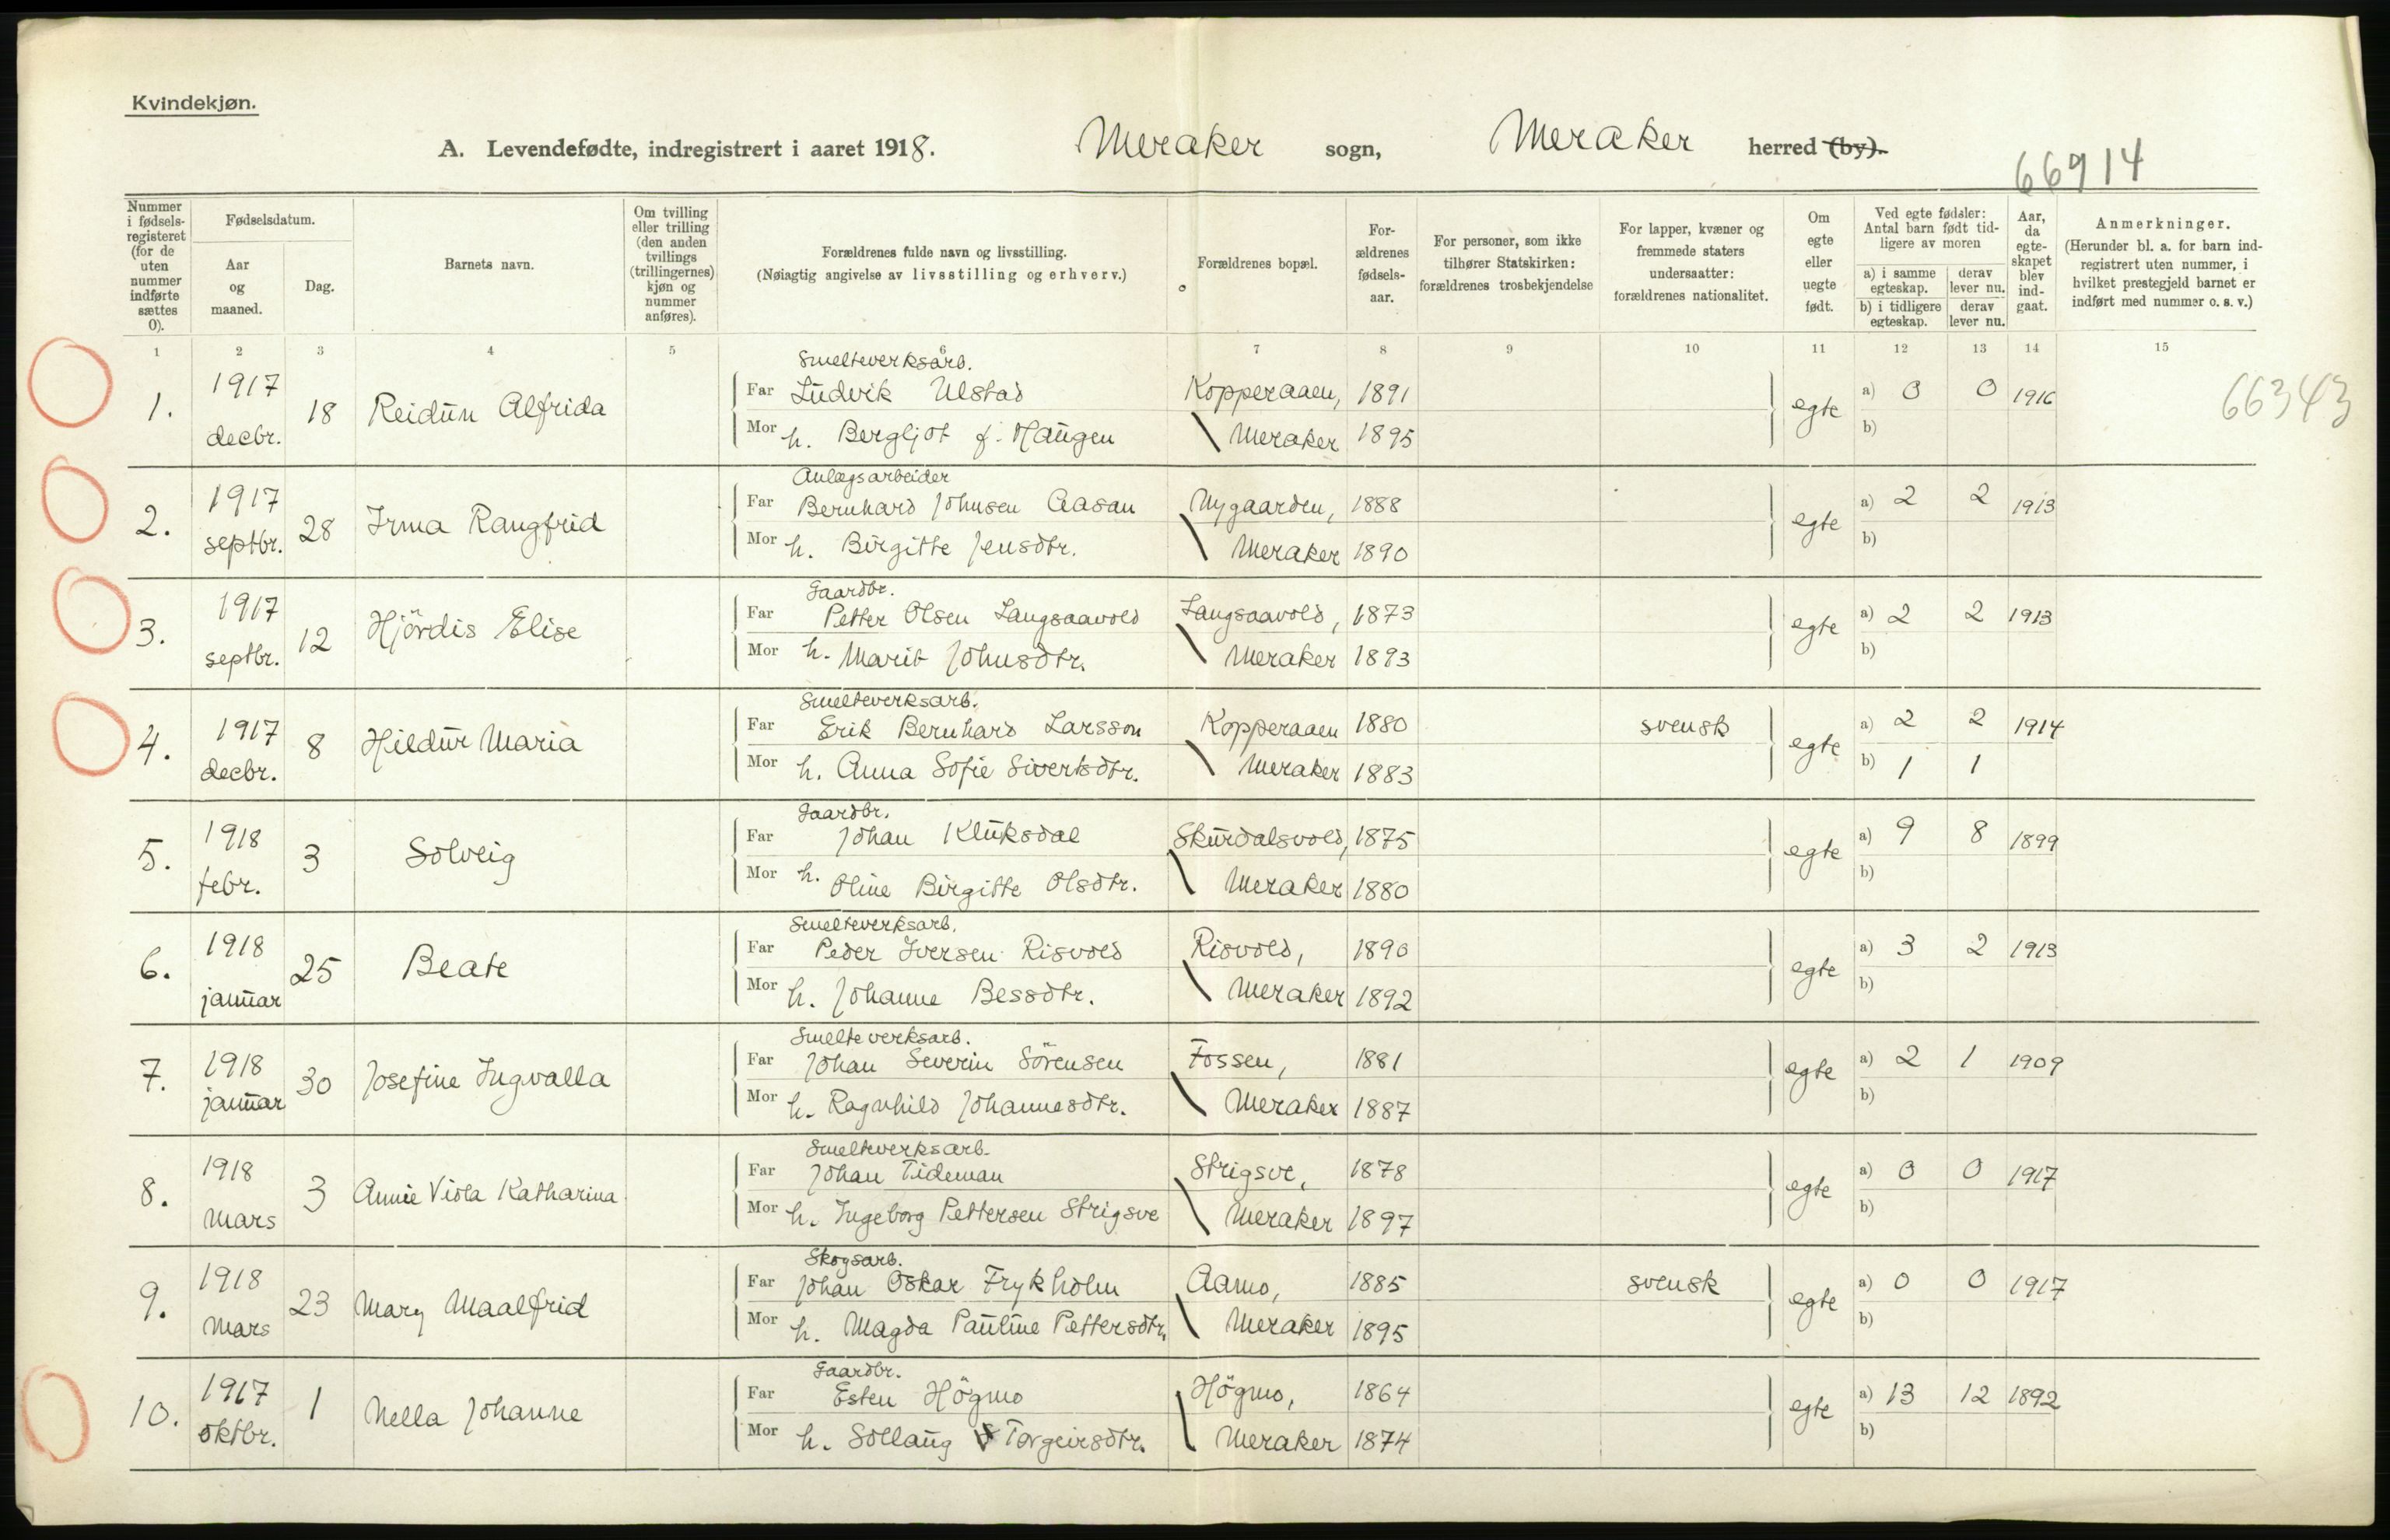 Kvindekjøn.
A. Levendefødte, indregistrert i aaret 1918. Meraker sogn, Meraker herred (by).
66914
Nummer i fødselsregisteret (for de uten nummer indførte sættes 0).
Fødselsdatum.
Aar og maaned.
Dag.
Barnets navn.
Om tvilling eller trilling (den anden tvillings (trillingernes) kjøn og nummer anføres).
Forældrenes fulde navn og livsstilling.
(Nøiagtig angivelse av livsstilling og erhverv.)
Forældrenes bopæl.
Forældrenes fødselsaar.
For personer, som ikke tilhører Statskirken: forældrenes trosbekjendelse
For lapper, kvæner og fremmede staters undersaatter: forældrenes nationalitet.
Om egte eller uegte født.
Ved egte fødsler: Antal barn født tidligere av moren
a) i samme egteskap. derav lever nu.
b) i tidligere egteskap. derav lever nu.
Aar, da egteskapet blev indgaat.
Anmerkninger.
(Herunder bl. a. for barn indregistrert uten nummer, i hvilket prestegjeld barnet er indført med nummer o. s. v.)
1 2 3 4 5 6 7 8 9 10 11 12 13 14 15
Smelteverksarb.
1. 1917 decbr. 18 Reidun Alfrida Far Ludvik Ulstad Kopperaaen, 1891 egte a) 0 0 1916 66343
Mor h. Bergljot f. Haugen Meraker 1895 b)
Anlægsarbeider
2. 1917 septbr. 28 Irma Rangfrid Far Bernhard Johnsen Aasan Nygaarden, 1888 egte a) 2 2 1913
Mor h. Birgitte Jensdtr. Meraker 1890 b)
Gaardbr.
3. 1917 septbr. 12 Hjördis Elise Far Petter Olsen Langsaavold Langsaavold, 1873 egte a) 2 2 1913
Mor h. Marit Johnsdtr. Meraker 1893 b)
Smelteverksarb.
4. 1917 decbr. 8 Hildur Maria Far Erik Bernhard Larsson Kopperaaen 1880 svensk egte a) 2 2 1914
Mor h. Anna Sofie Sivertsdtr. Meraker 1883 b) 1 1
Gaardbr.
5. 1918 febr. 3 Solveig Far Johan Kluksdal Skurdalsvold, 1875 egte a) 9 8 1899
Mor h. Oline Birgitte Olsdtr. Meraker 1880 b)
Smelteverksarb.
6. 1918 januar 25 Beate Far Peder Iversen Risvold Risvold, 1890 egte a) 3 2 1913
Mor h. Johanne Bessdtr. Meraker 1892 b)
Smelteverksarb.
7. 1918 januar 30 Josefine Ingvalla Far Johan Severin Sörensen Fossen, 1881 egte a) 2 1 1909
Mor h. Ragnhild Johannesdtr. Meraker 1887 b)
Smelteverksarb.
8. 1918 mars 3 Annie Viola Katharina Far Johan Tideman Strigsve, 1878 egte a) 0 0 1917
Mor h. Ingeborg Pettersen Strigsve Meraker 1897 b)
Skogsarb.
9. 1918 mars 23 Mary Maalfrid Far Johan Oskar Frykholm Aamo, 1885 svensk egte a) 0 0 1917
Mor h. Magda Pauline Pettersdtr. Meraker 1895 b)
Gaardbr.
10. 1917 oktbr. 1 Nella Johanne Far Esten Högmo Högmo, 1864 egte a) 13 12 1892
Mor h. Sollaug Torgeirsdtr. Meraker 1874 b)